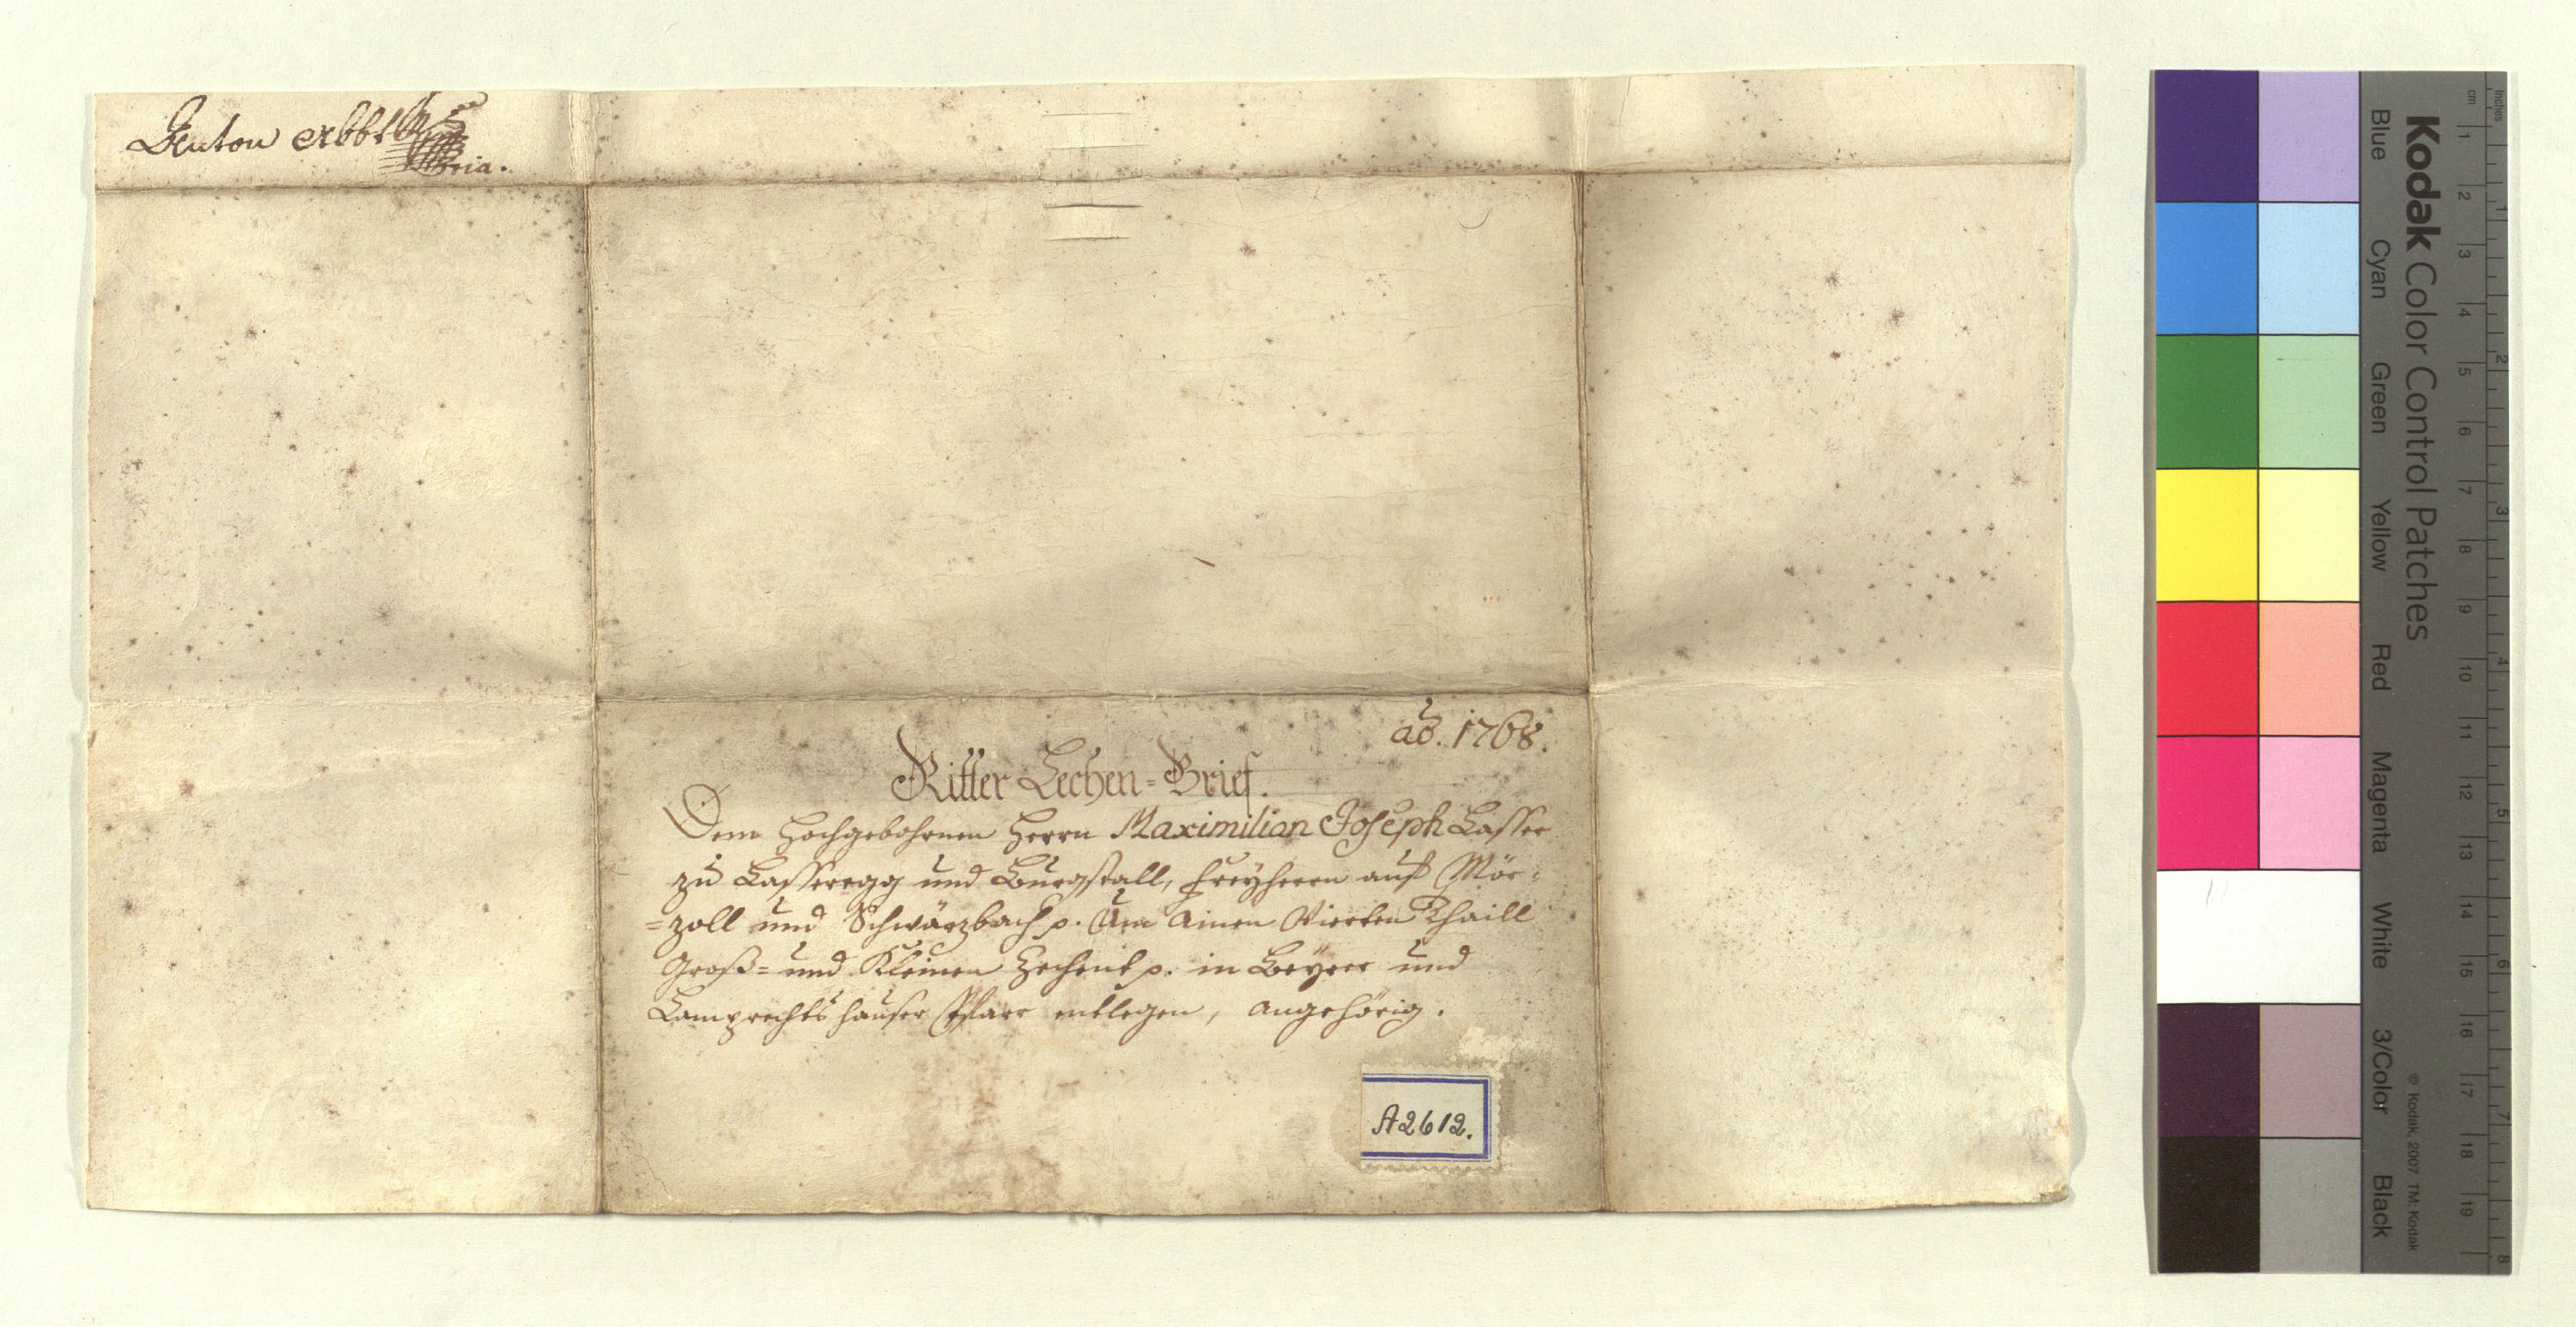 Anton Abbt
mpria.
ao. 1768.
Ritter Lechen=Brief.
Dem Hochgebohrnen Herrn Maximilian Joseph Lasser
zu Lasseregg und Burgstall, Freyherrn auf Mör=
=zoll und Schwärzbach p. Um Ainen Vierten Thaill
Groß= und Kleinen Zechent p. in Beyrer und
Lamprechtshauser Pfarr entlegen, angehörig.
A2612.
Kodak Color Control Patches
Blue Cyan Green Yellow Red Magenta White 3/Color Black
© Kodak, 2007 TM: Kodak
cm 1 2 3 4 5 6 7 8 9 10 11 12 13 14 15 16 17 18 19
inches 1 2 3 4 5 6 7 8